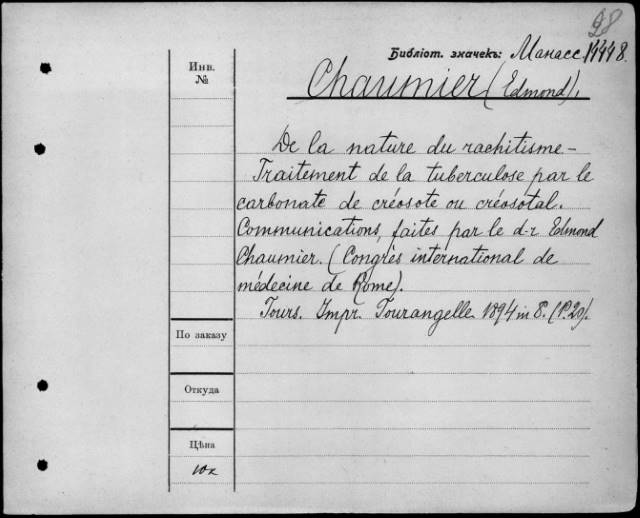 98
Библіот. значекъ: Манасс. 14448.
Инв.
№
Chaumier (Edmond).
De la nature du rachitisme –
Traitement de la tuberculose par le
carbonate de créosote ou créosotal.
Communications, faites par le d-r Edmond
Chaumier. (Congrès international de
médecine de Rome).
Tours. Impr. Tourangelle. 1894 in 8. (P. 20).
По заказу
Откуда
Цѣна